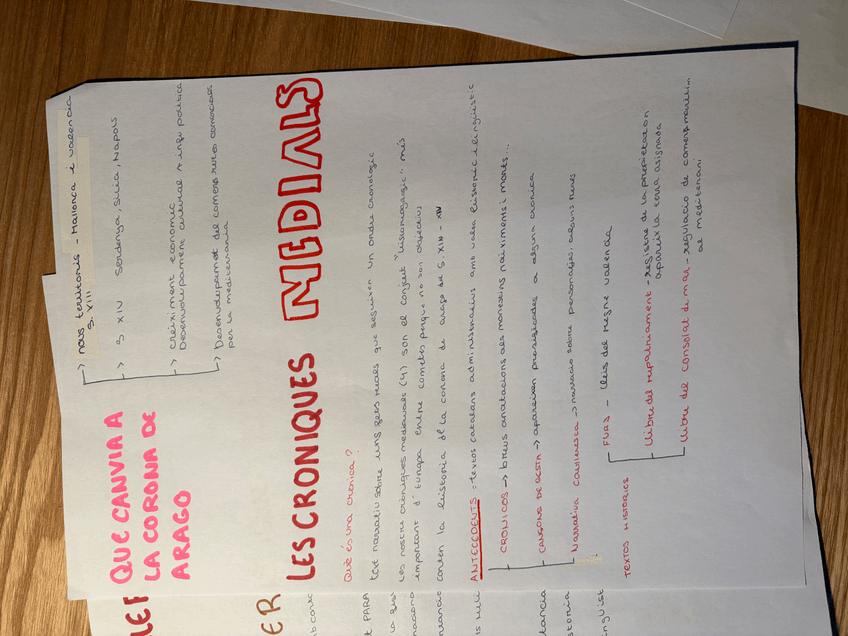 QUE CANVIA A
LA CORONA DE
ARAGO
nous territoris - Mallorca i Valencia
S. XIII
S XIV Serdenya, Silia, Napols
creiximent economic
Desenvolupament cultural + infl politica
Desenvolupamet del comerç
per la mediterrania
LES CRONIQUES MEDIALS
Què és una cronica?
text narratiu sobre uns fets reals que segueixen un ordre cronologic
Les nostre cròniques medievals (4) son el conjunt "historiografic" més
important d'Europa entre cometes perque no son objectius
conten la historia de la corona de arago de S. XIII - XIV
ANTECEDENTS : textos catalans administratius amb valor historic i lingüistic
CRONICOS → breus anotacions als monestirs naixements i morts...
CANSONS DE GESTA → apareixen prosificades a alguna cronica
Narrativa → narracio sobre personatges, alguns reis
TEXTOS HISTORICS
FURS - lleis del regne valencia
Llibre del repartiment - registre de la propietat on
apareix la terra asignada
llibre del consolat de mar - regulacio de comerç maritim
al mediterrani
LEF
ER
PARA
tancia
storia
ingüist